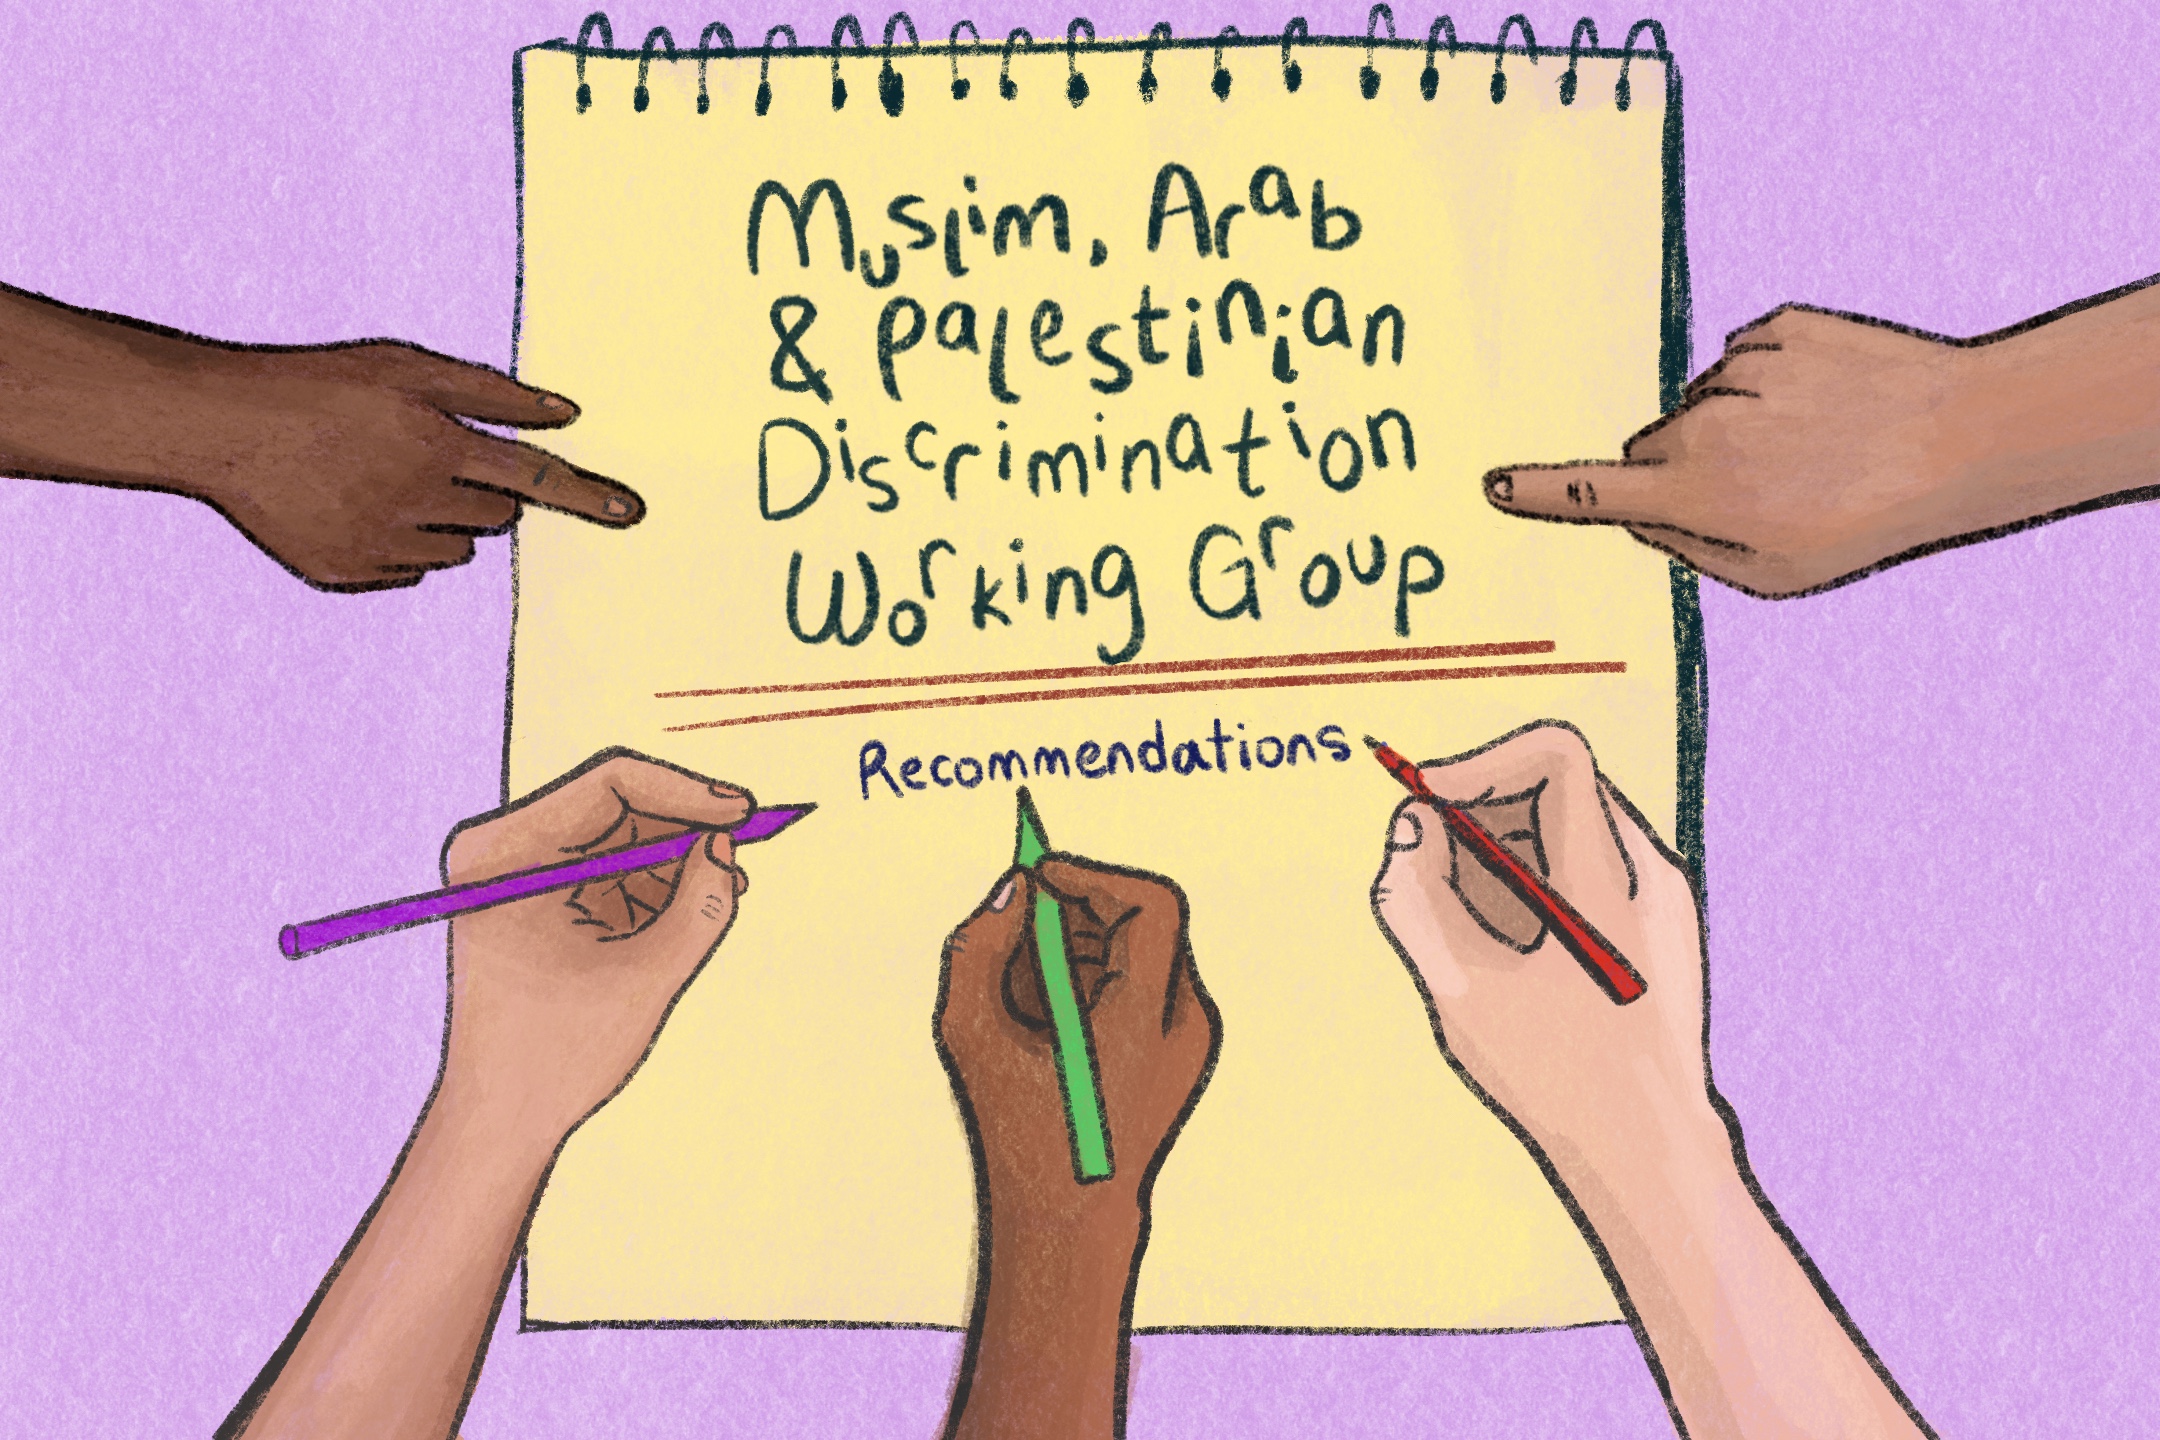 Muslim, Arab
& Palestinian
Discrimination
Working Group
Recommendations